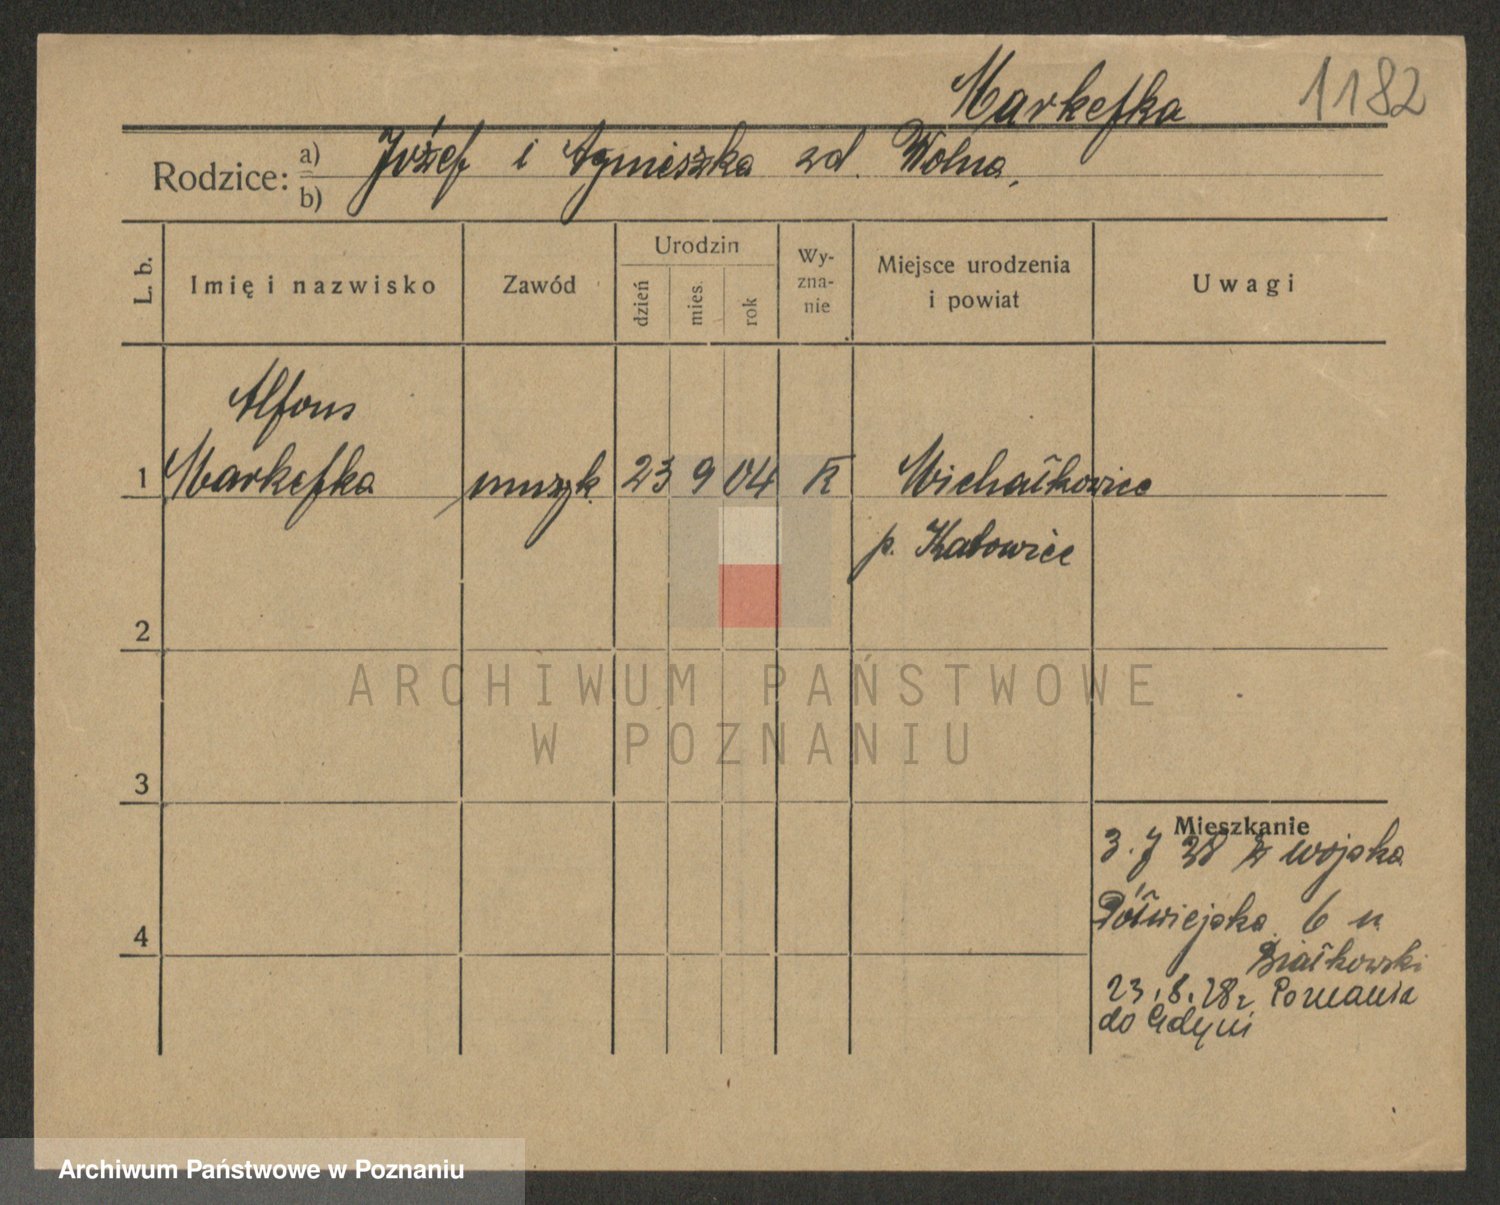 Markefka 1182
Rodzice: a) b) Józef i Agnieszka zd. Wolna,
L. b. Imię i nazwisko Zawód Urodzin dzień mies. rok Wy-zna-nie Miejsce urodzenia i powiat Uwagi
Alfons
1 Markefka muzyk 23 9 04 K Michałkowice
p. Katowice
2
ARCHIWUM PAŃSTWOWE
W POZNANIU
3
Mieszkanie
3. 28 z wojska
4 Półwiejska 6 u
Białkowski
23.8.28 z Poznania
do Gdyni
Archiwum Państwowe w Poznaniu